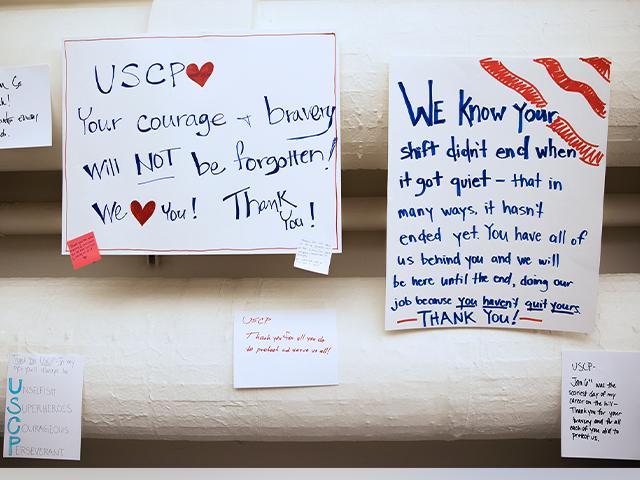 USCP
Your courage + bravery
will NOT be forgotten!
We you! Thank
you!
WE know your
shift didn't end when
it got quiet - that in
many ways, it hasn't
ended yet. You have all of
us behind you and we will
be here until the end, doing our
job because you haven't quit yours.
THANK YOU!
USCP
Thank you for all you do
to protect and serve us all!
UNSELFISH
SUPERHEROES
COURAGEOUS
PERSEVERANT
USCP-
Jan 6th was the
scariest day of my
career on the hill -
Thank you for your
bravery and for all
each of you did to
protect us.